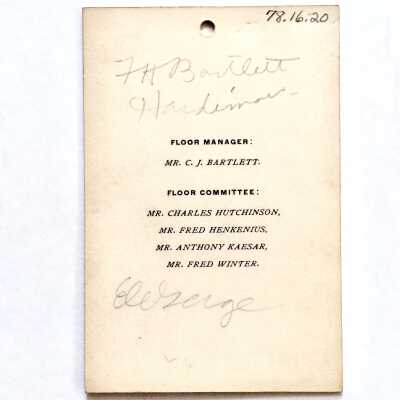 78.16.20
FH Bartlett
FLOOR MANAGER:
MR. C. J. BARTLETT.
FLOOR COMMITTEE:
MR. CHARLES HUTCHINSON,
MR. FRED HENKENIUS,
MR. ANTHONY KAESAR,
MR. FRED WINTER.